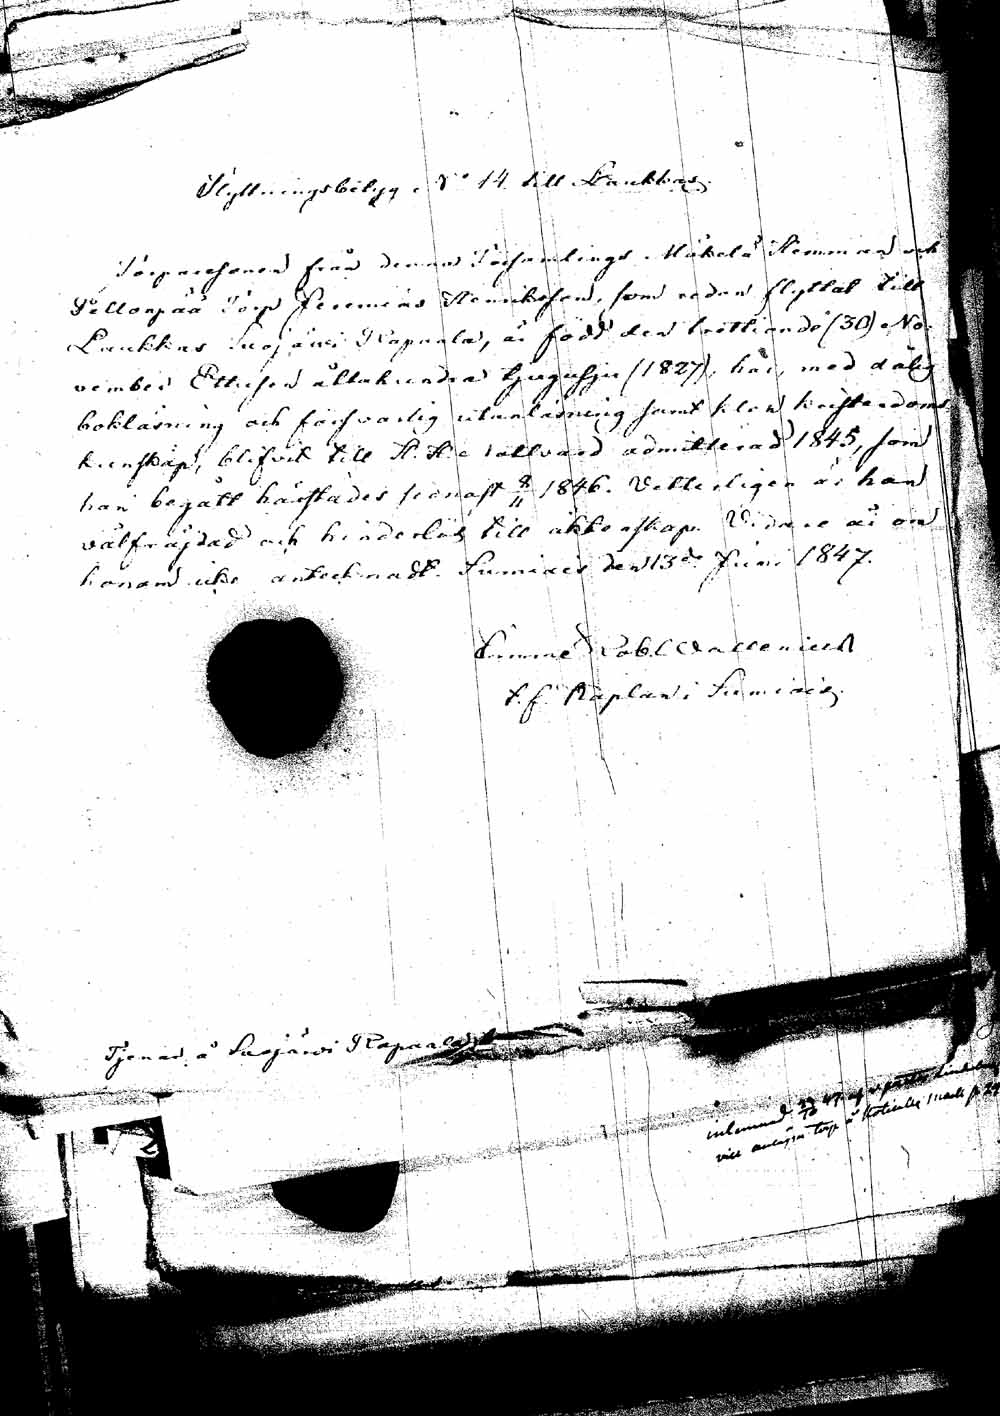 Flyttningsbetyg N:o 14 till Laukkas.
Torparesonen från denna Församlings Mäkelä Hemman och
Peltonpää Torp Jeremias Henriksson, som redan flyttat till
Laukkas Suojärvi Kapaala, är född den trettionde (30) No-
vember Ettusen åttahundra tjugusju (1827), har, med dålig
bokläsning och försvarlig utanläsning samt klen kristendoms
kunskap, blifvit till H. H. Nattvard admitterad 1845, som
han begått härstädes sednast 8/11 1846. Vetterligen är han
välfräjdad och hinderlös till äktenskap. Vidare är om
honom icke antecknadt. Sumiais den 13de Juni 1847.
Rob. Wallenius
t. f. Kaplan i Sumiais.
Tjenar å Suojärvi Kapaala
inlemnad 47 af
torp å